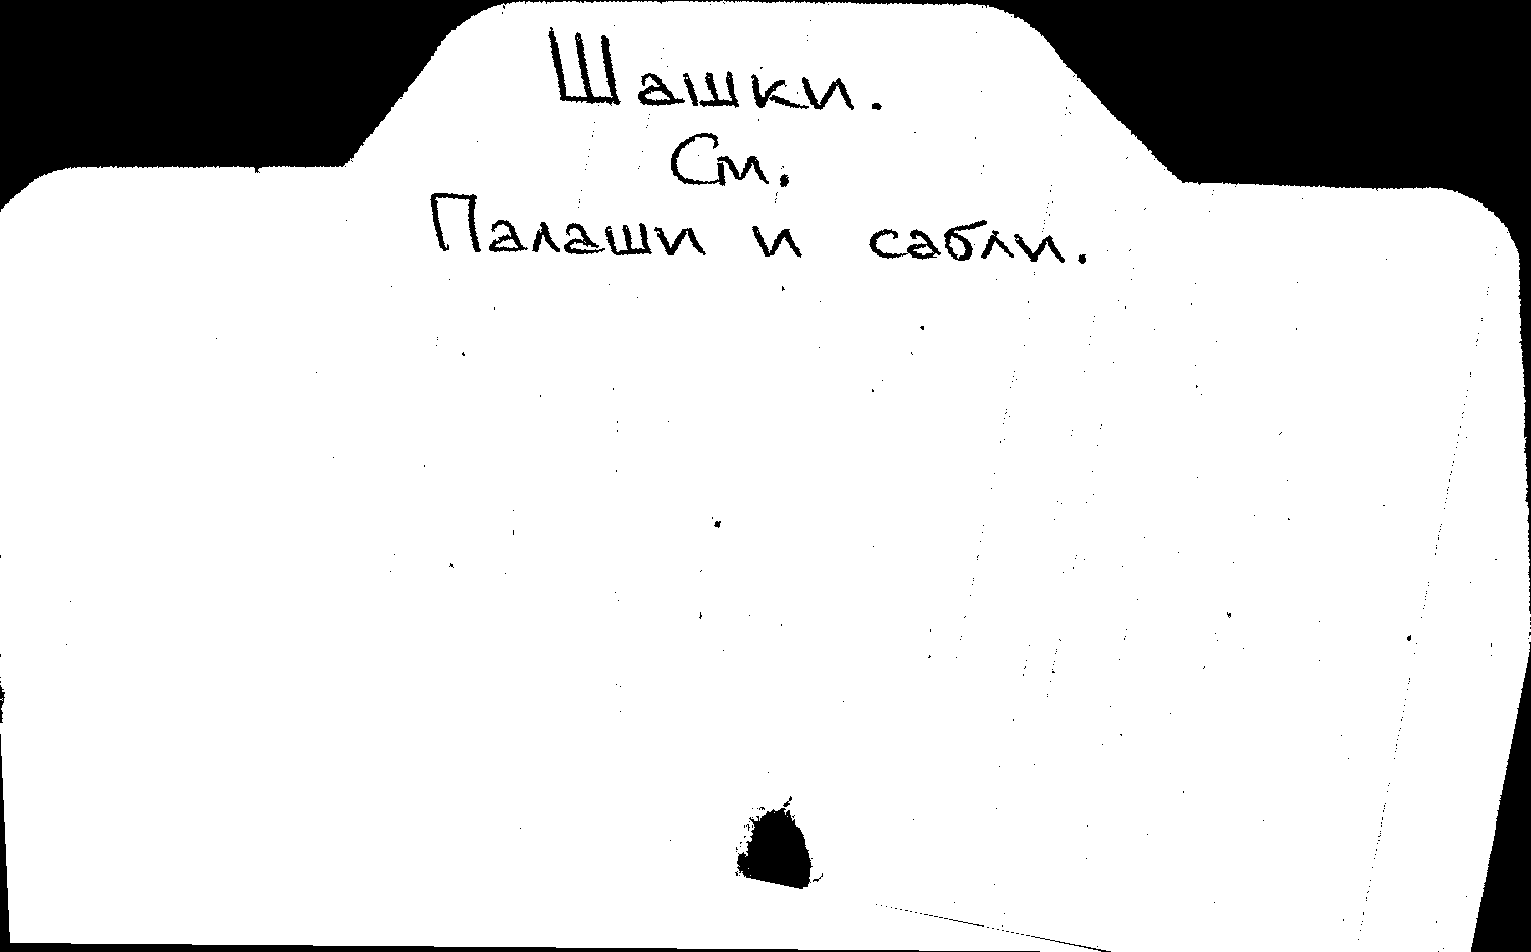 Шашки.
См.
Палаши и сабли.